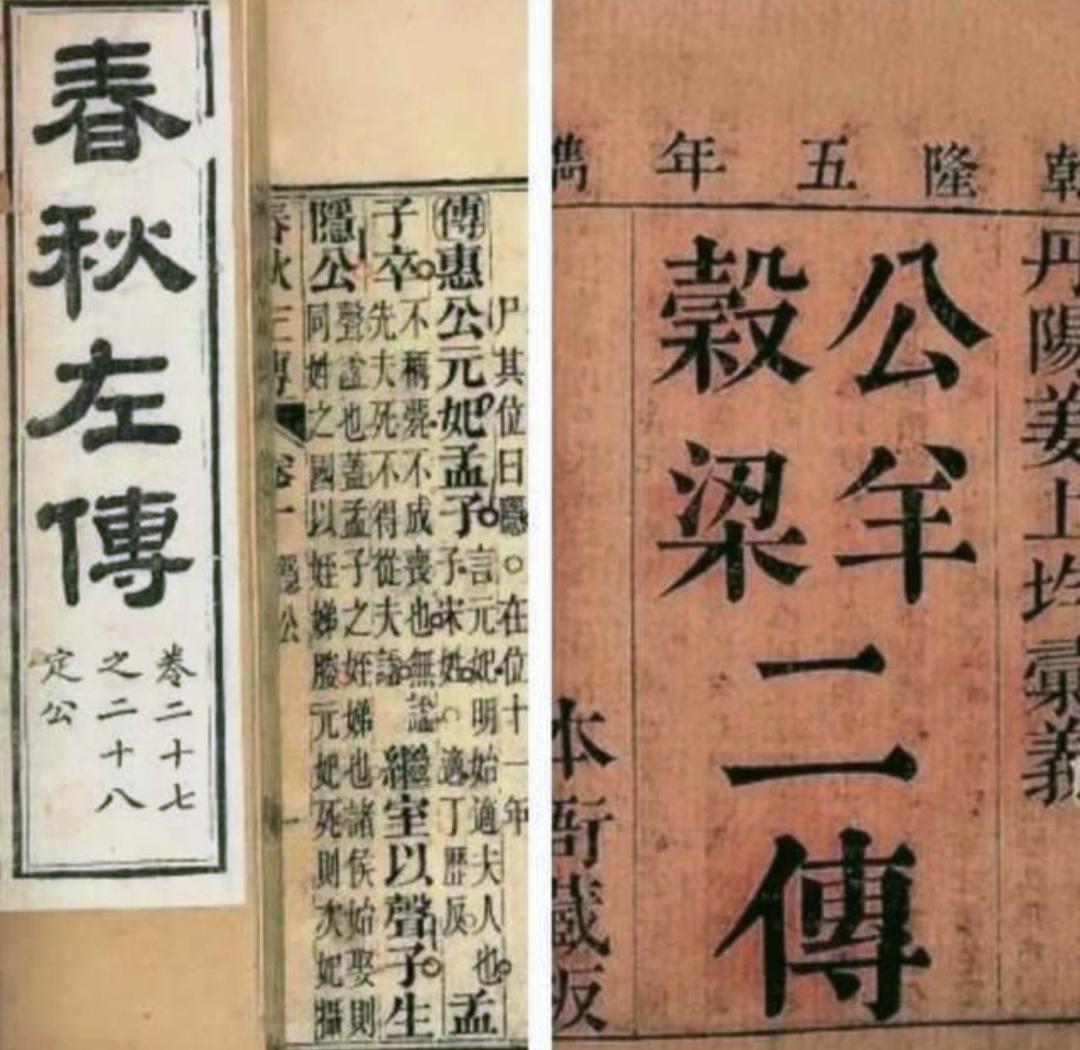 春秋左傳
卷二十七
之二十八
定公
尸其位曰隱。在位十一年
傳惠公元妃孟子言元妃明始適夫人也子宋姓。適丁歷反孟
子卒不稱薨不成喪也無諡先夫死不得從夫諡繼室以聲子生
隱公聲諡也蓋孟子之姪娣也諸侯始娶則同姓之國以姪娣媵元妃死則次妃攝
卷一 隱公
一
乾隆五年鐫
丹陽姜上均彙義
公羊
穀梁
二傳
本衙藏板